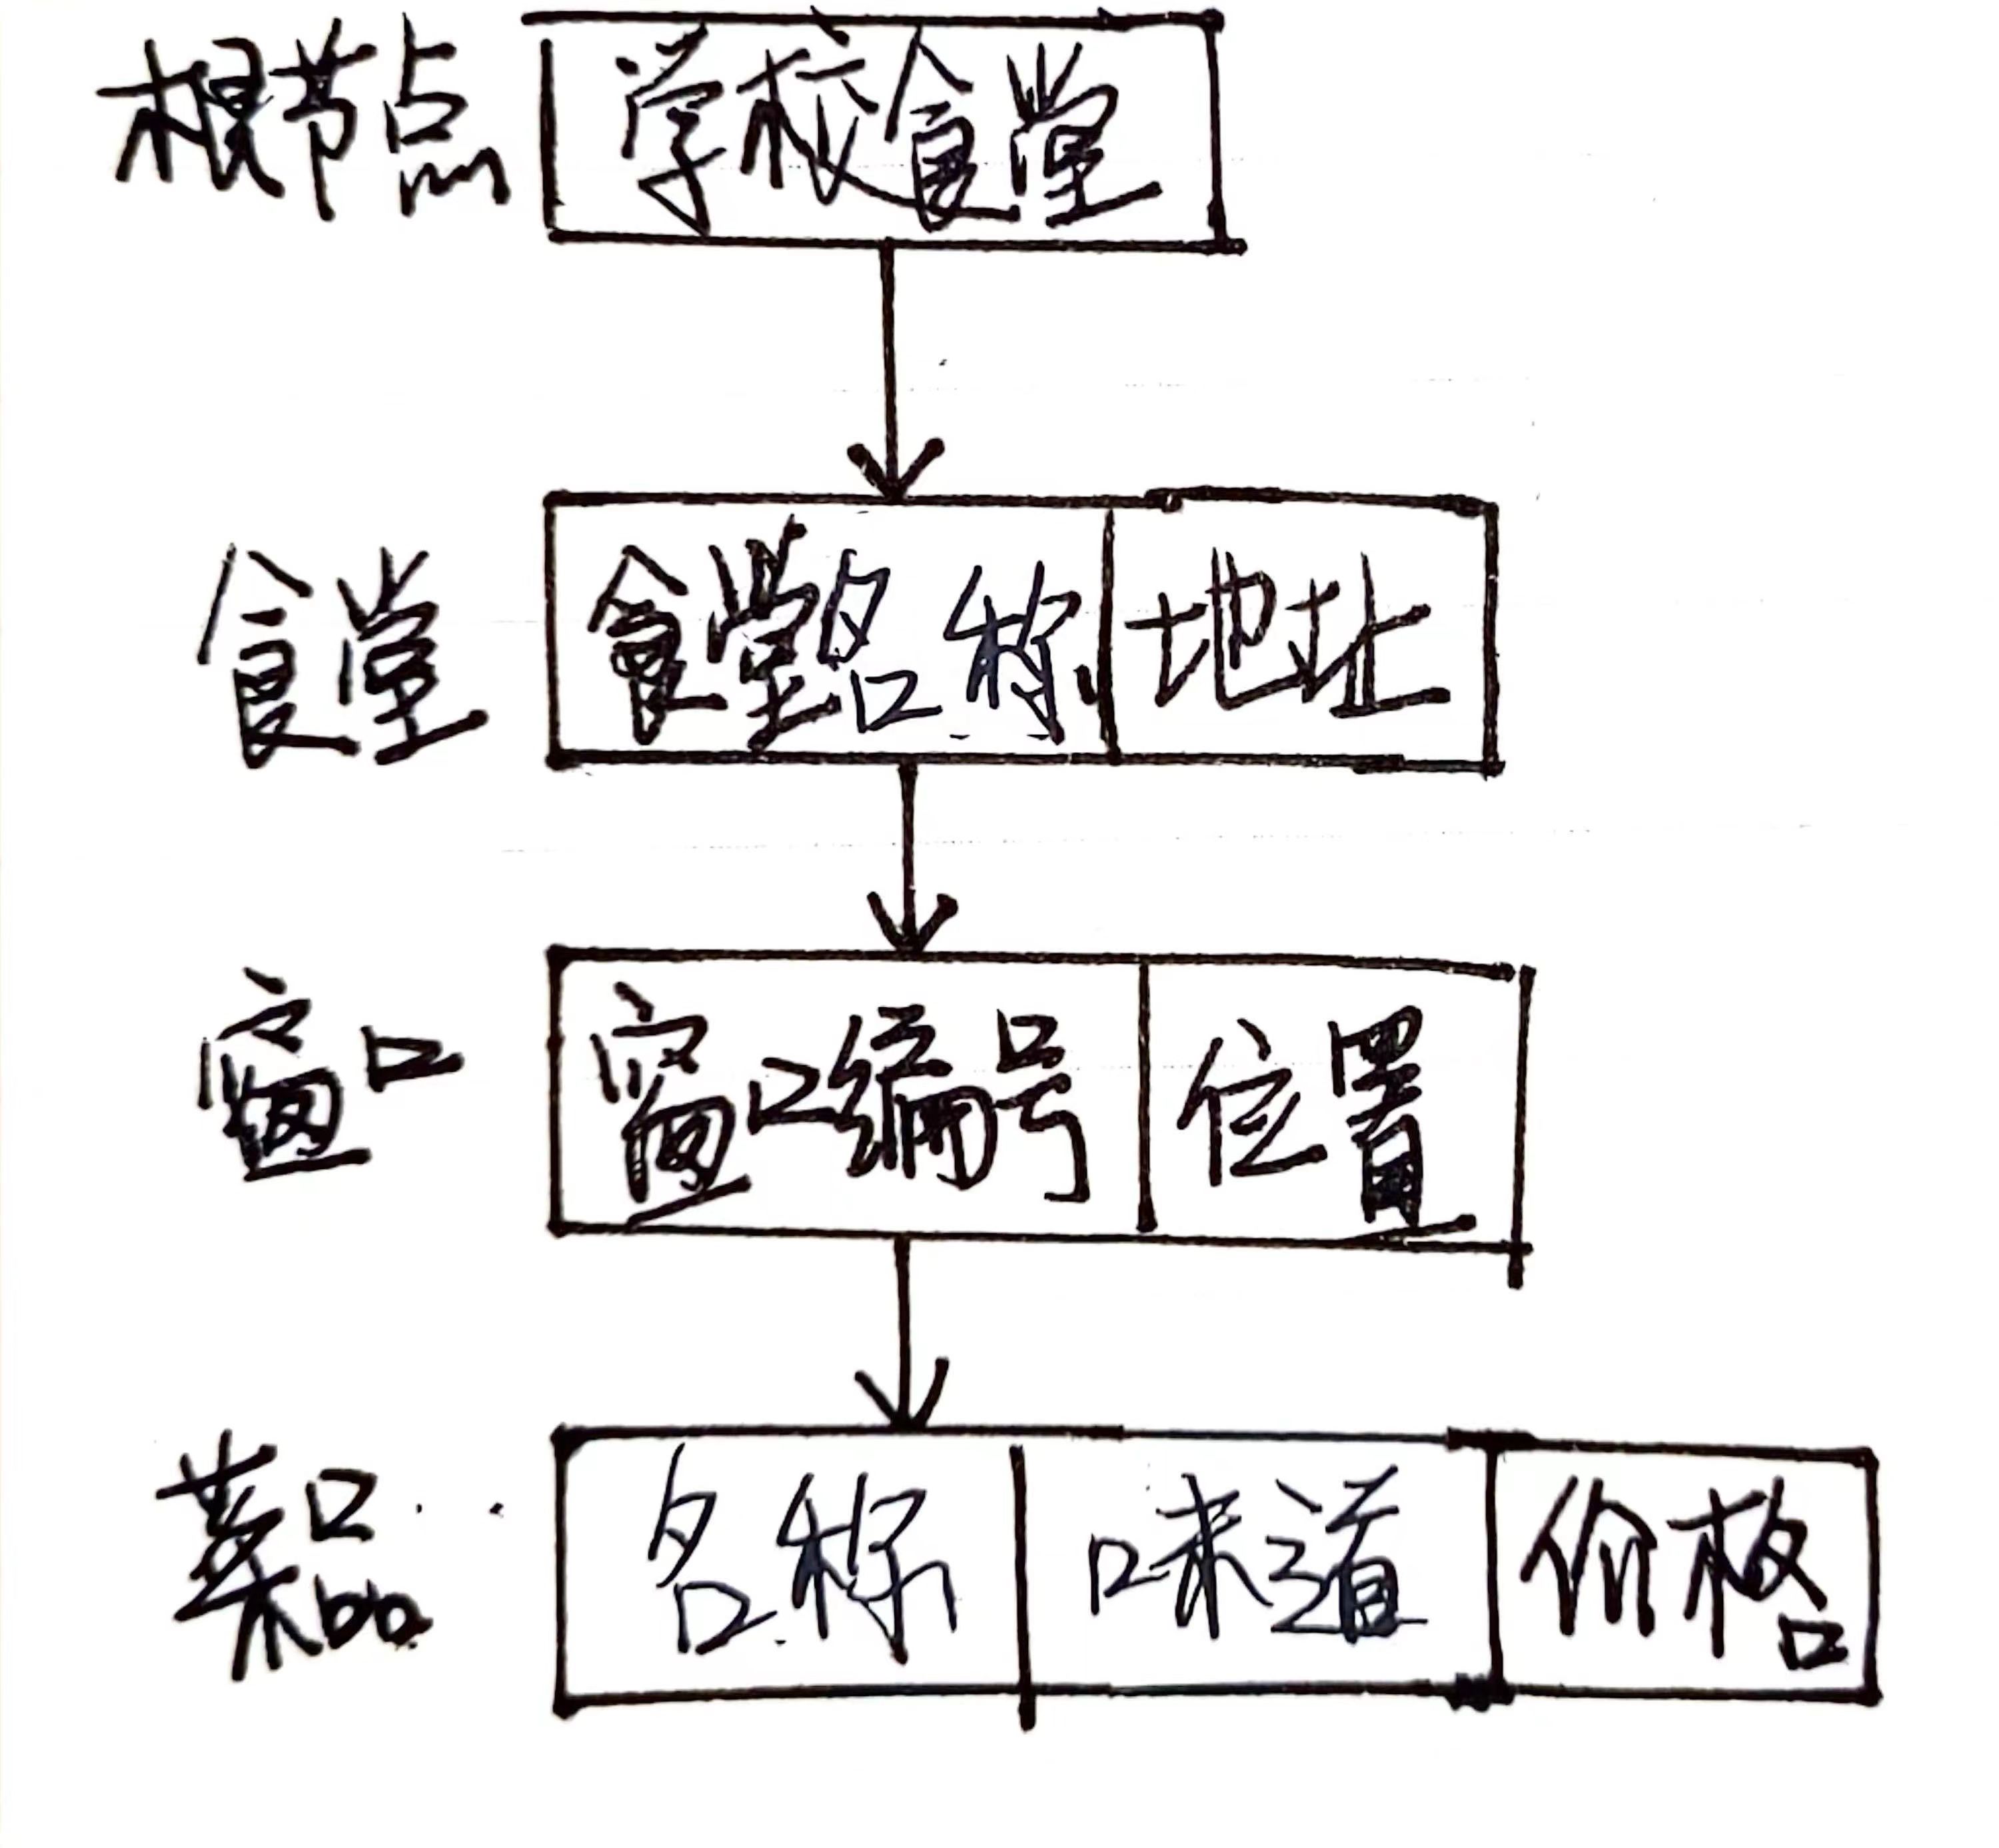 根节点 学校食堂
食堂 食堂名称 地址
窗口 窗口编号 位置
菜品 名称 味道 价格